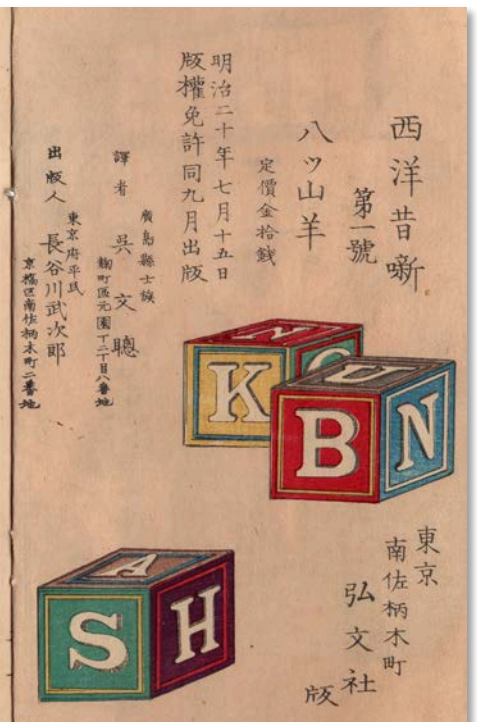 西洋昔噺
第一號
八ッ山羊
定價金拾錢
明治二十年七月十五日
版權免許同九月出版
廣島縣士族
譯者 呉文聰
麹町區元園丁二丁目八番地
東京府平民
出版人 長谷川武次郎
京橋區南佐柄木町二番地
N
K
U
B N
東京
南佐柄木町
弘文社
版
A
S H